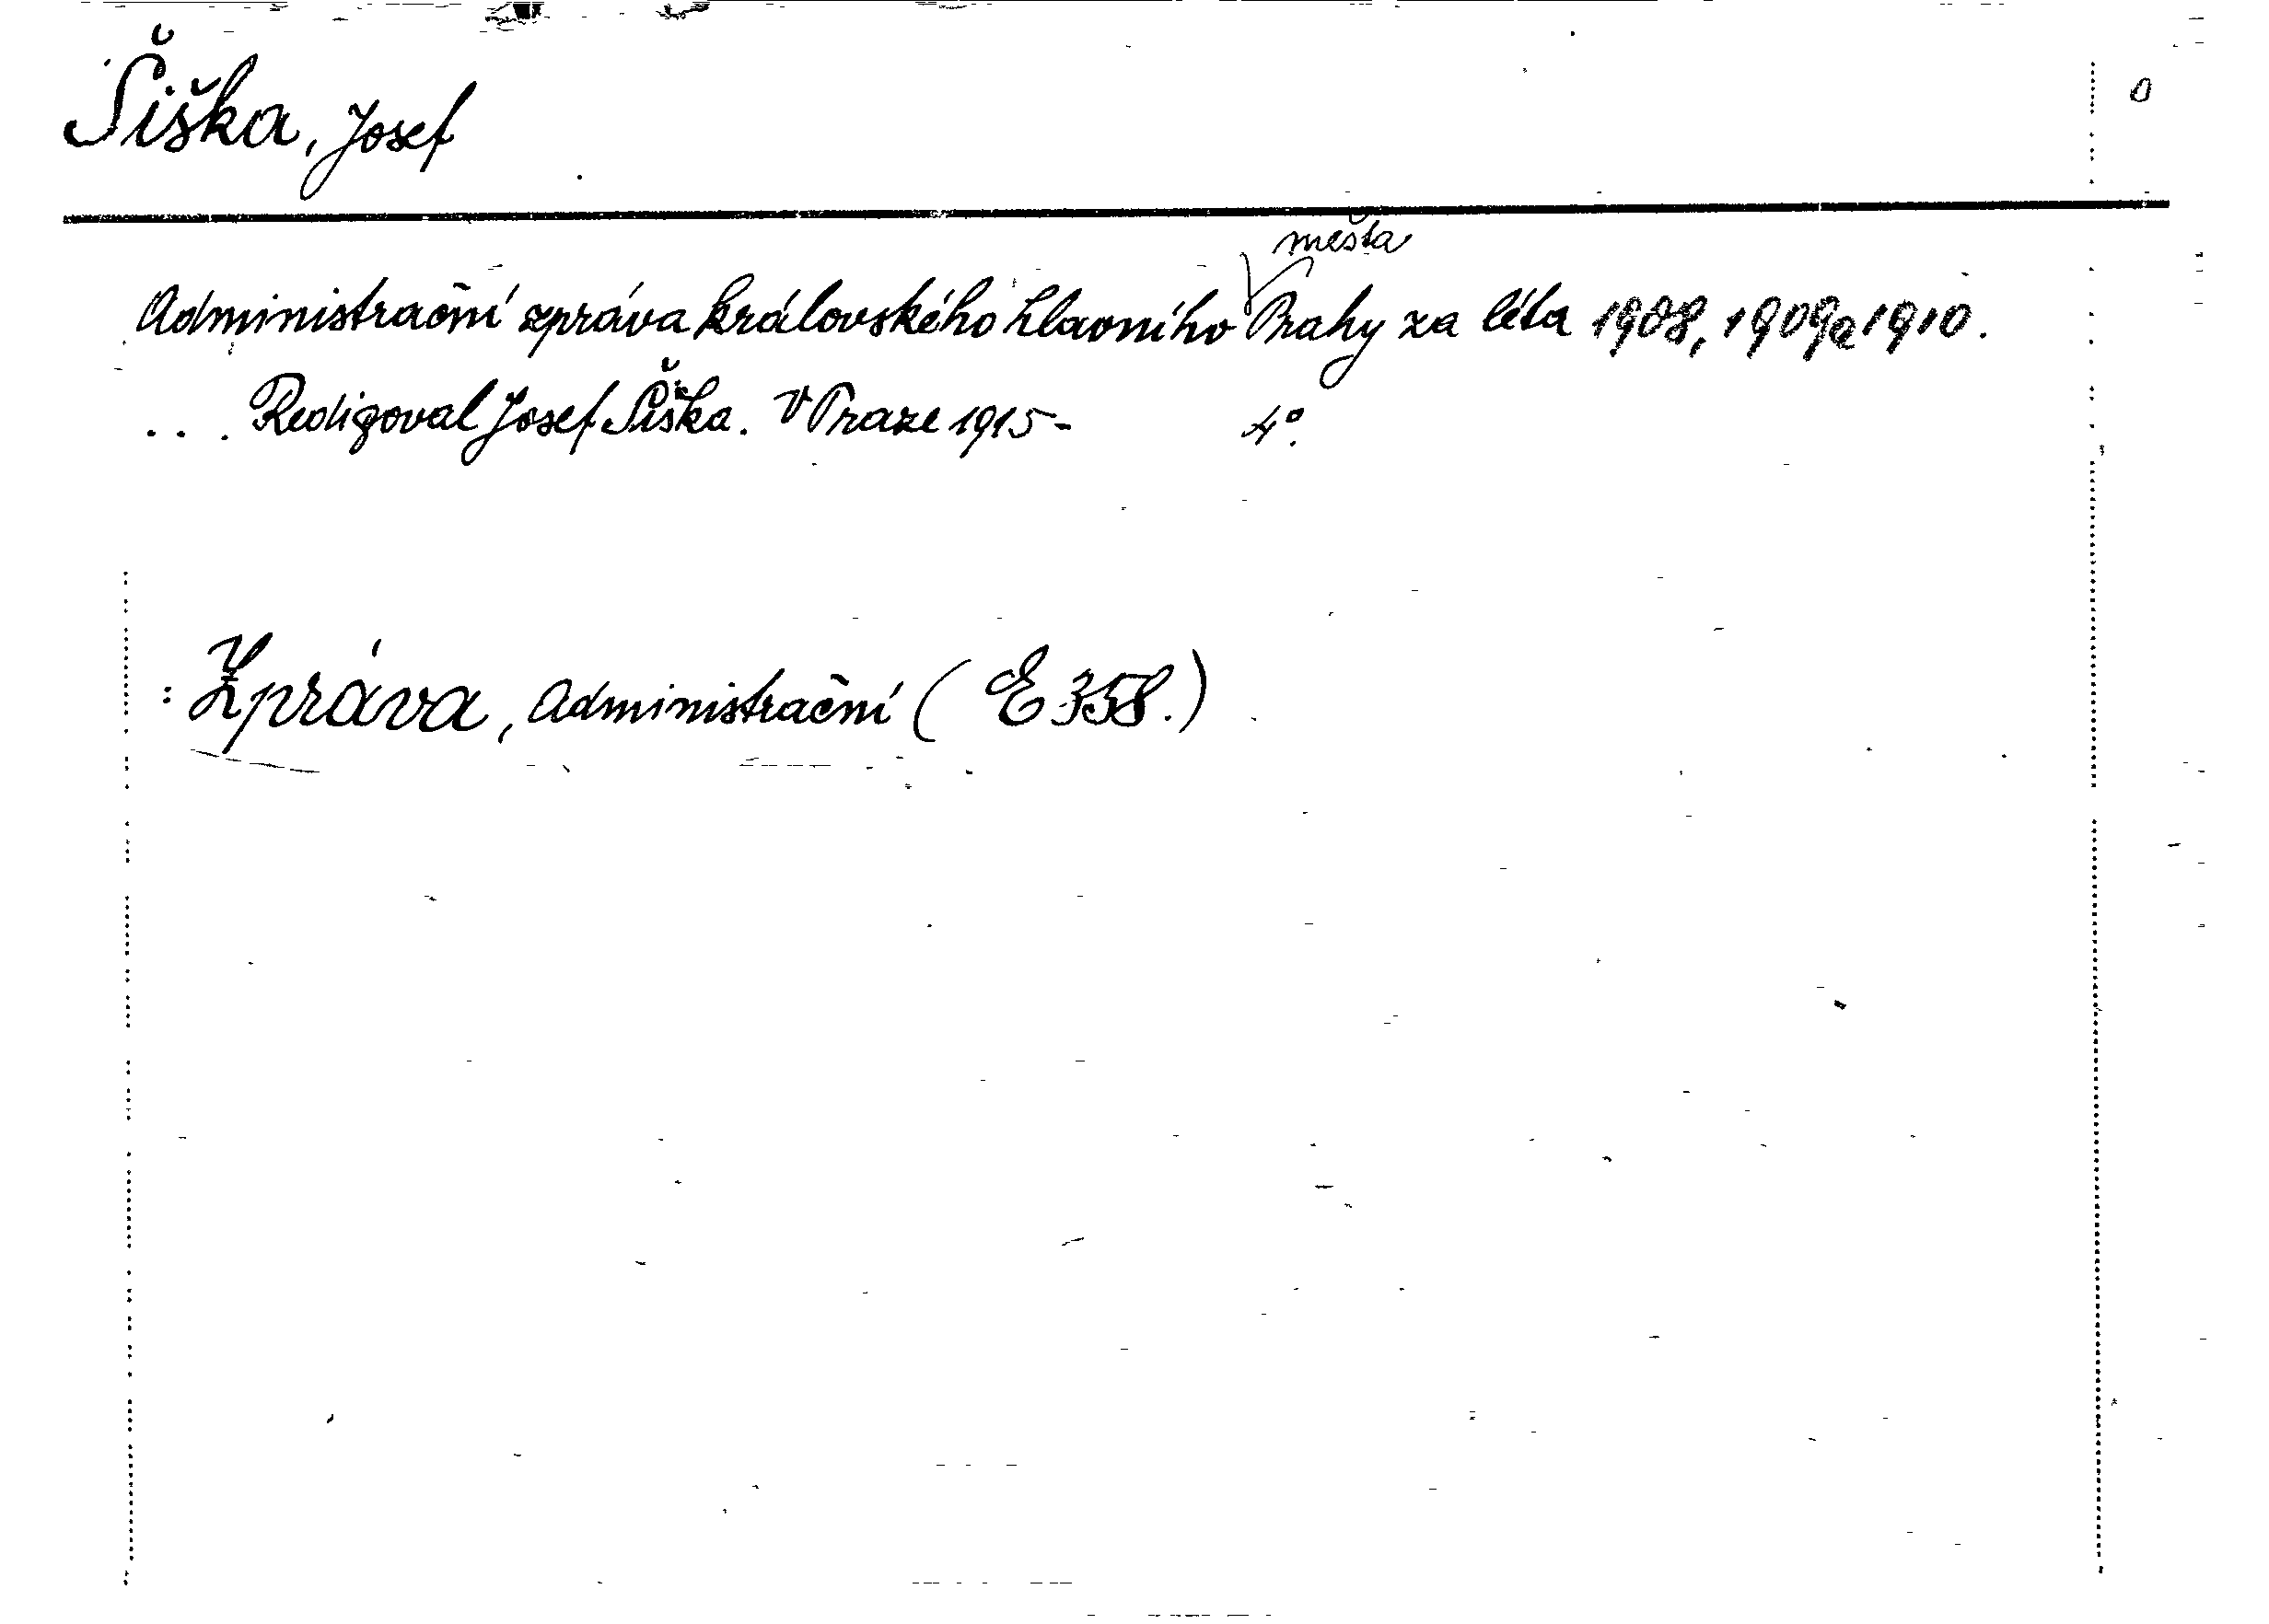 Šiška, Josef 0
Administrační zpráva královského hlavního města Prahy za léta 1908, 1909 a 1910.
... Redigoval Josef Šiška. V Praze 1915- 4°.
: Zpráva, Administrační (E 358.)